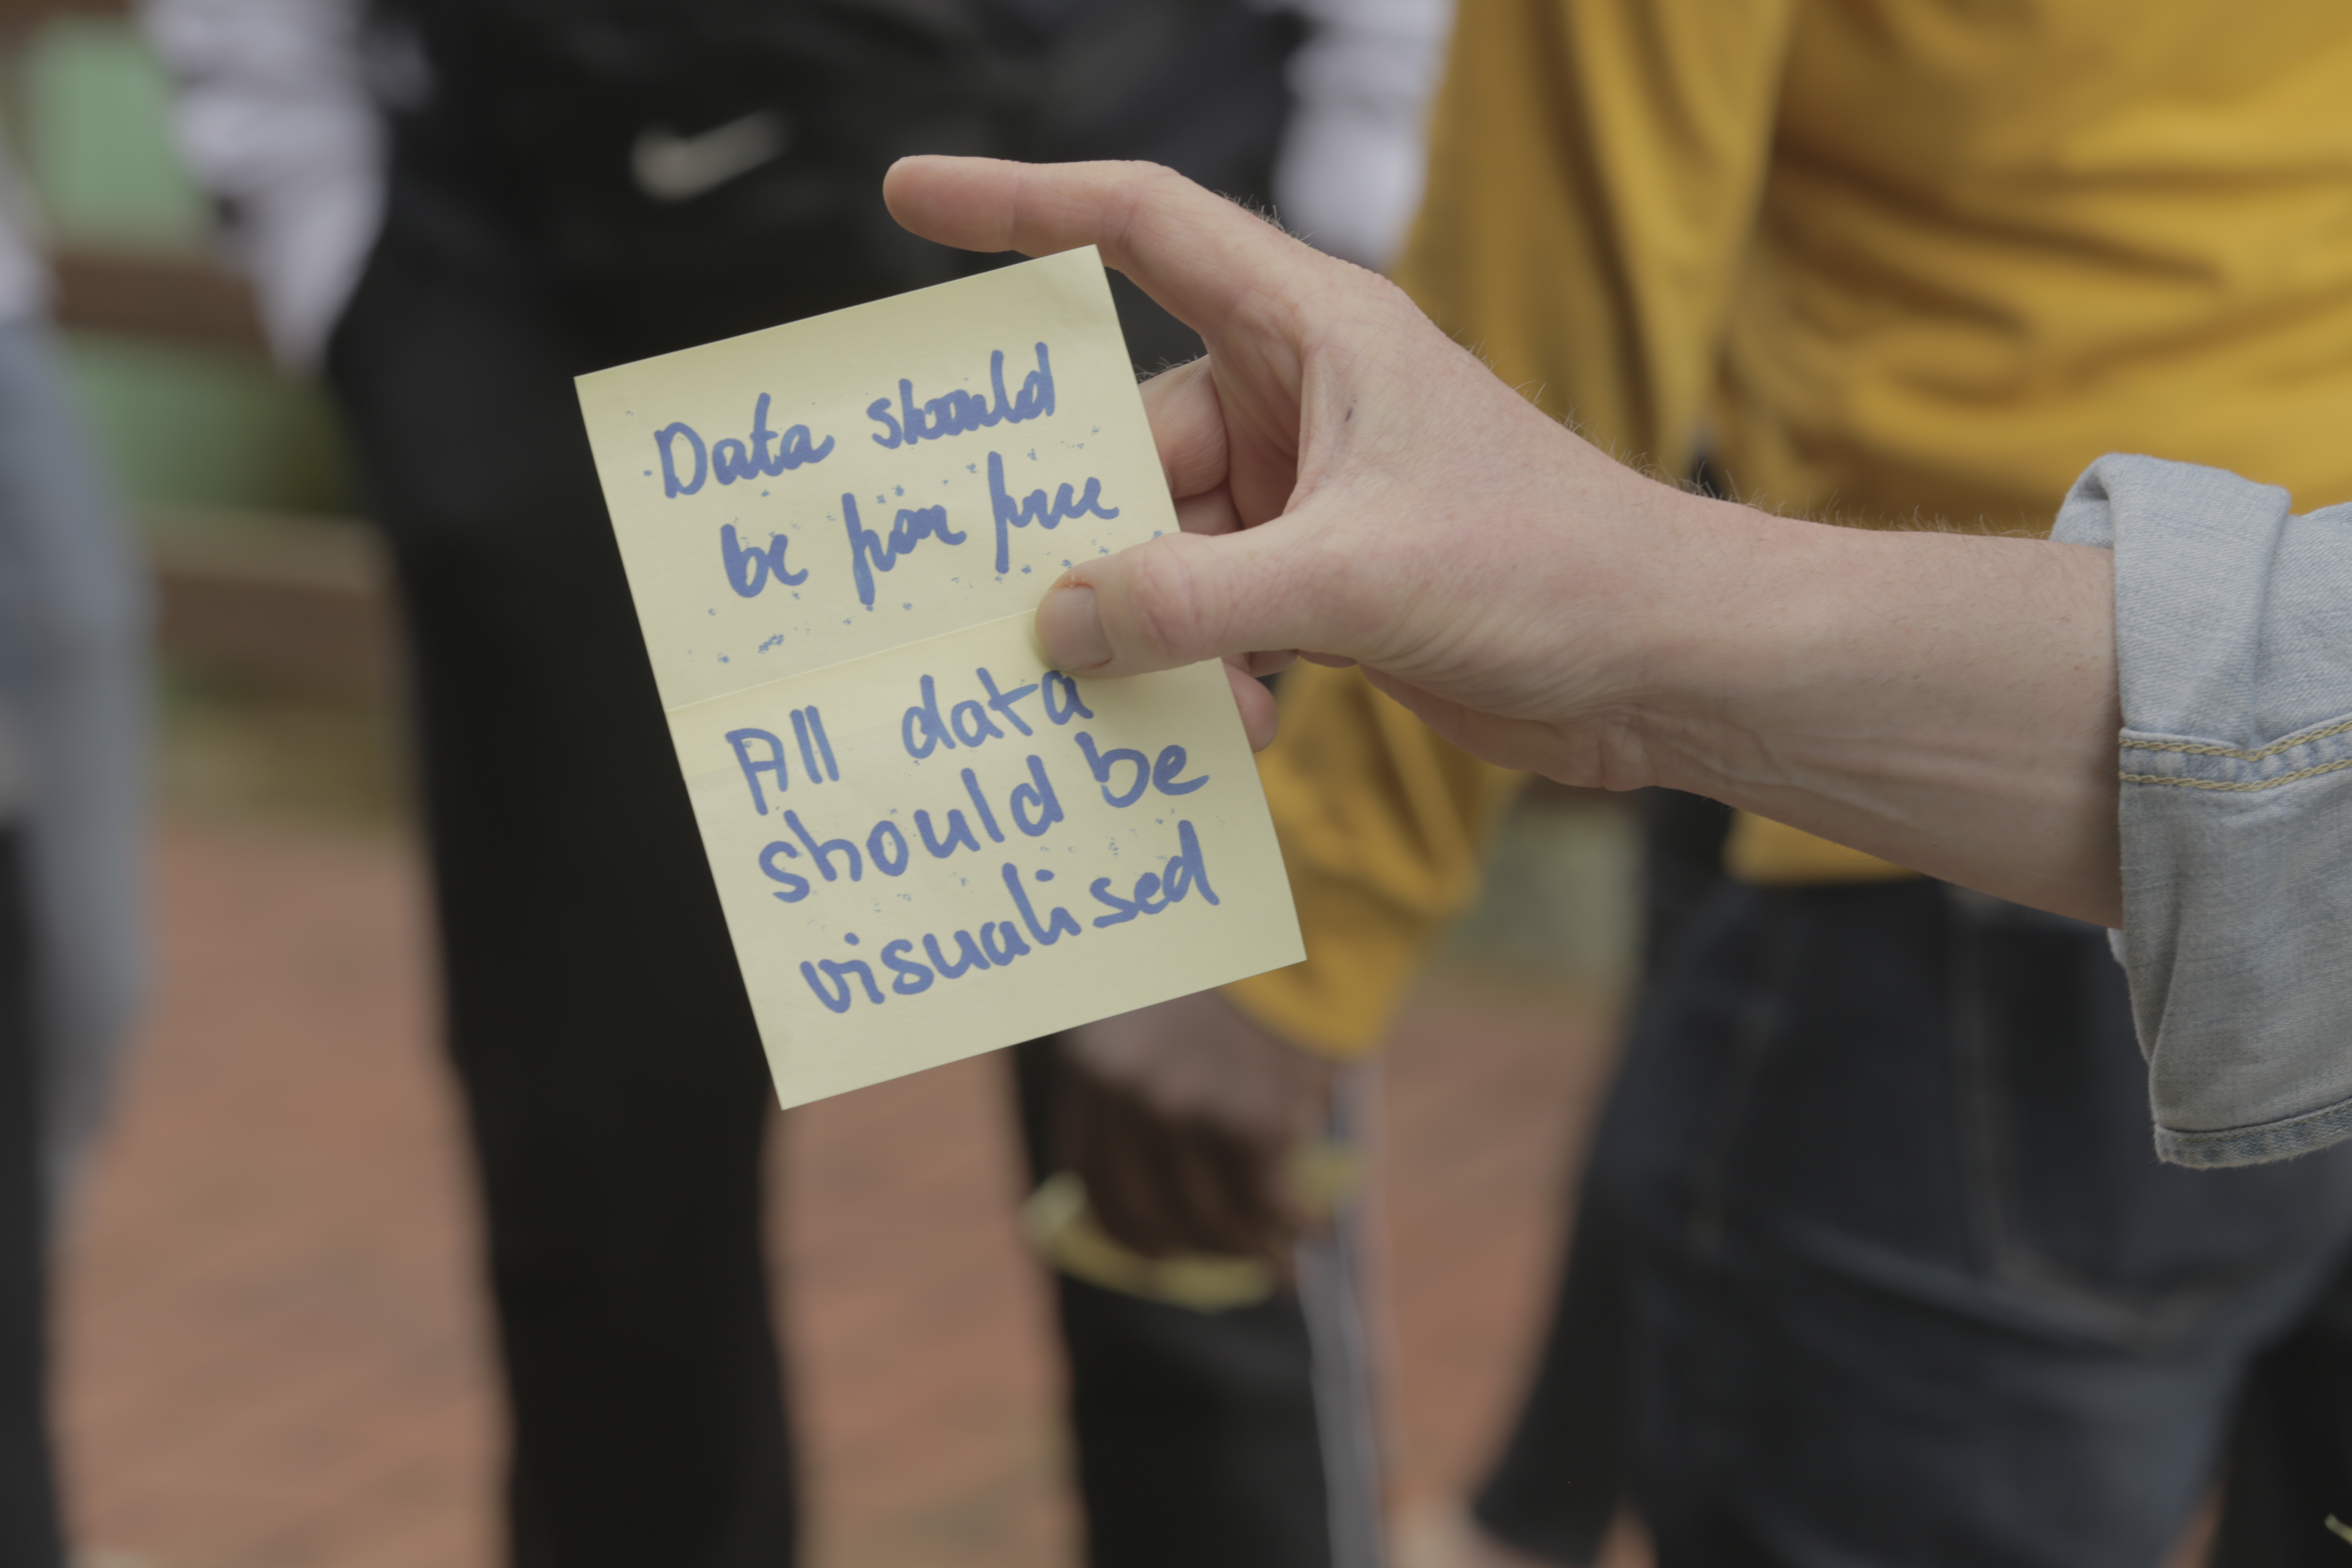 Data should
be for free
All data
should be
visualised